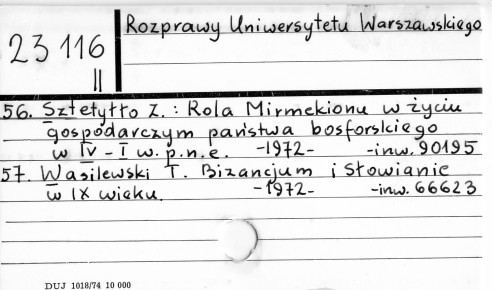 23 116
II
Rozprawy Uniwersytetu Warszawskiego
56. Sztetyłło Z. : Rola Mirmekionu w życiu
gospodarczym państwa bosforskiego
w IV - I w. p.n.e. -1972- -inw. 90195
57. Wasilewski T. Bizancjum i Słowianie
w IX wieku. -1972- -inw. 66623
DUJ 1018/74 10 000